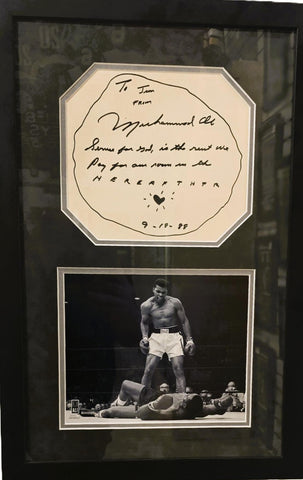 To Jim
FROM
Muhammad Ali
Serve for God, is the rent we
Pay for our room in the
HEREAFTHTR
9-19-88